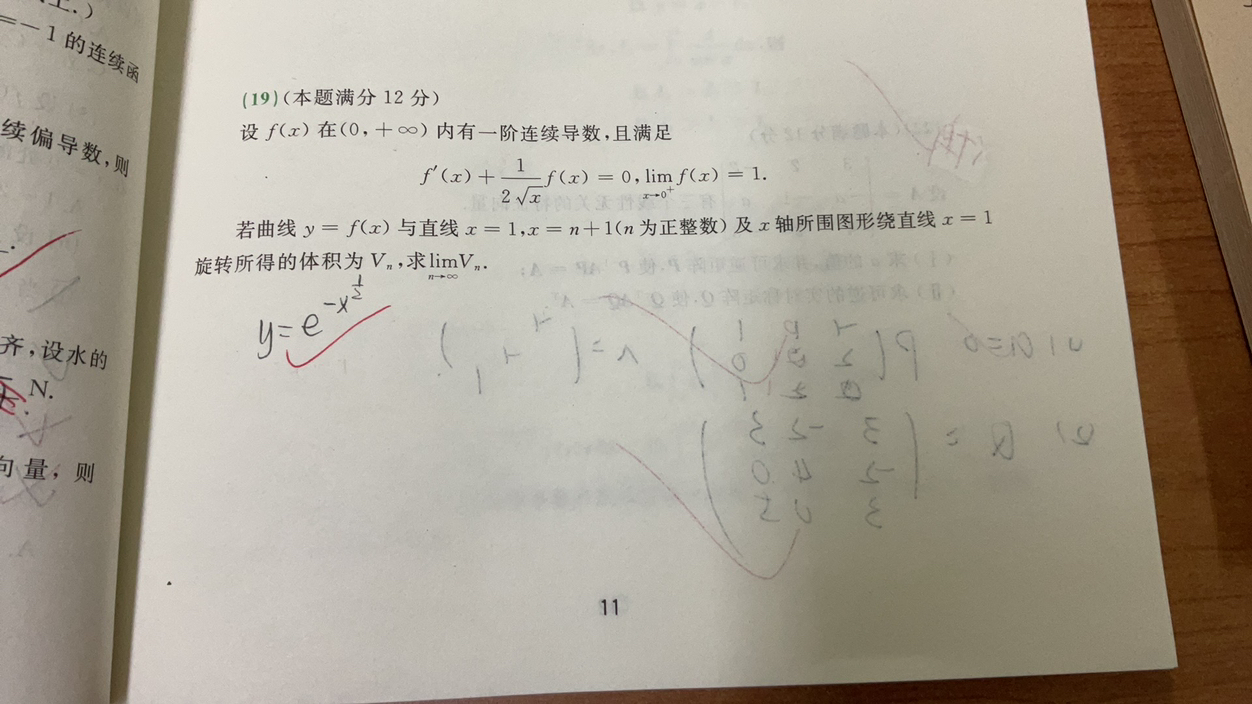 =-1 的连续函
续偏导数,则
齐,设水的
N.
向量,则
(19)(本题满分 12 分)
设 f(x) 在(0,+∞) 内有一阶连续导数,且满足
f′(x) + \frac{1}{2\sqrt{x}} f(x) = 0, \lim_{x→0^+} f(x) = 1.
若曲线 y = f(x) 与直线 x = 1, x = n+1(n 为正整数) 及 x 轴所围图形绕直线 x = 1
旋转所得的体积为 V_n,求 \lim_{n→∞} V_n.
y=e^{-x^{\frac{1}{2}}}
11